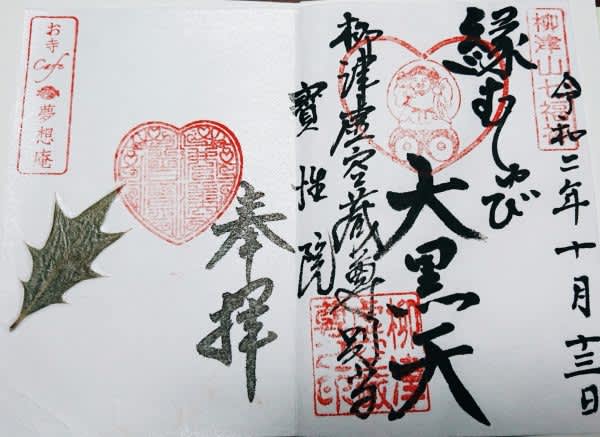 令和二年十月十三日
柳津山七福神
縁むすび
大黒天
柳津虚空蔵尊別当
寶性院
奉拝
お寺Cafe夢想庵